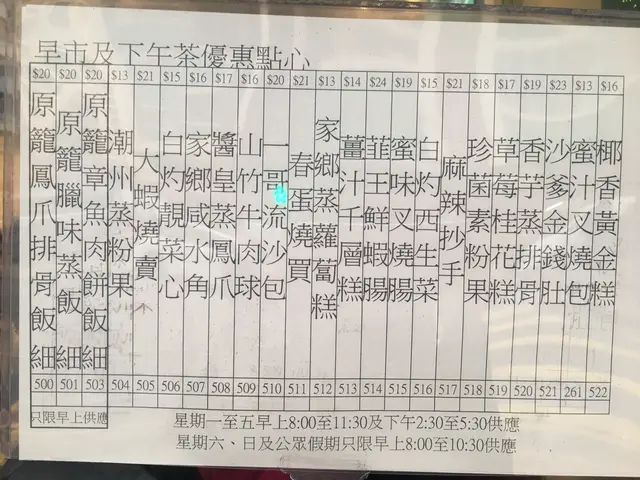 早市及下午茶優惠點心
$20 $20 $20 $13 $21 $15 $16 $17 $16 $20 $21 $13 $14 $24 $19 $15 $21 $18 $17 $19 $23 $13 $16
原籠鳳爪排骨飯 細
原籠臘味蒸飯 細
原籠章魚肉餅飯 細
潮州蒸粉果
大蝦燒賣
白灼靚菜心
家鄉咸水角
醬皇蒸鳳爪
山竹牛肉球
一哥流沙包
春蛋燒買
家鄉蒸蘿蔔糕
薑汁千層糕
韮王鮮蝦腸
蜜味叉燒腸
白灼西生菜
麻辣抄手
珍菌素粉果
草莓桂花糕
香芋蒸排骨
沙爹金錢肚
蜜汁叉燒包
椰香黃金糕
500 501 503 504 505 506 507 508 509 510 511 512 513 514 515 516 517 518 519 520 521 261 522
只限早上供應
星期一至五早上8:00至11:30及下午2:30至5:30供應
星期六、日及公眾假期只限早上8:00至10:30供應